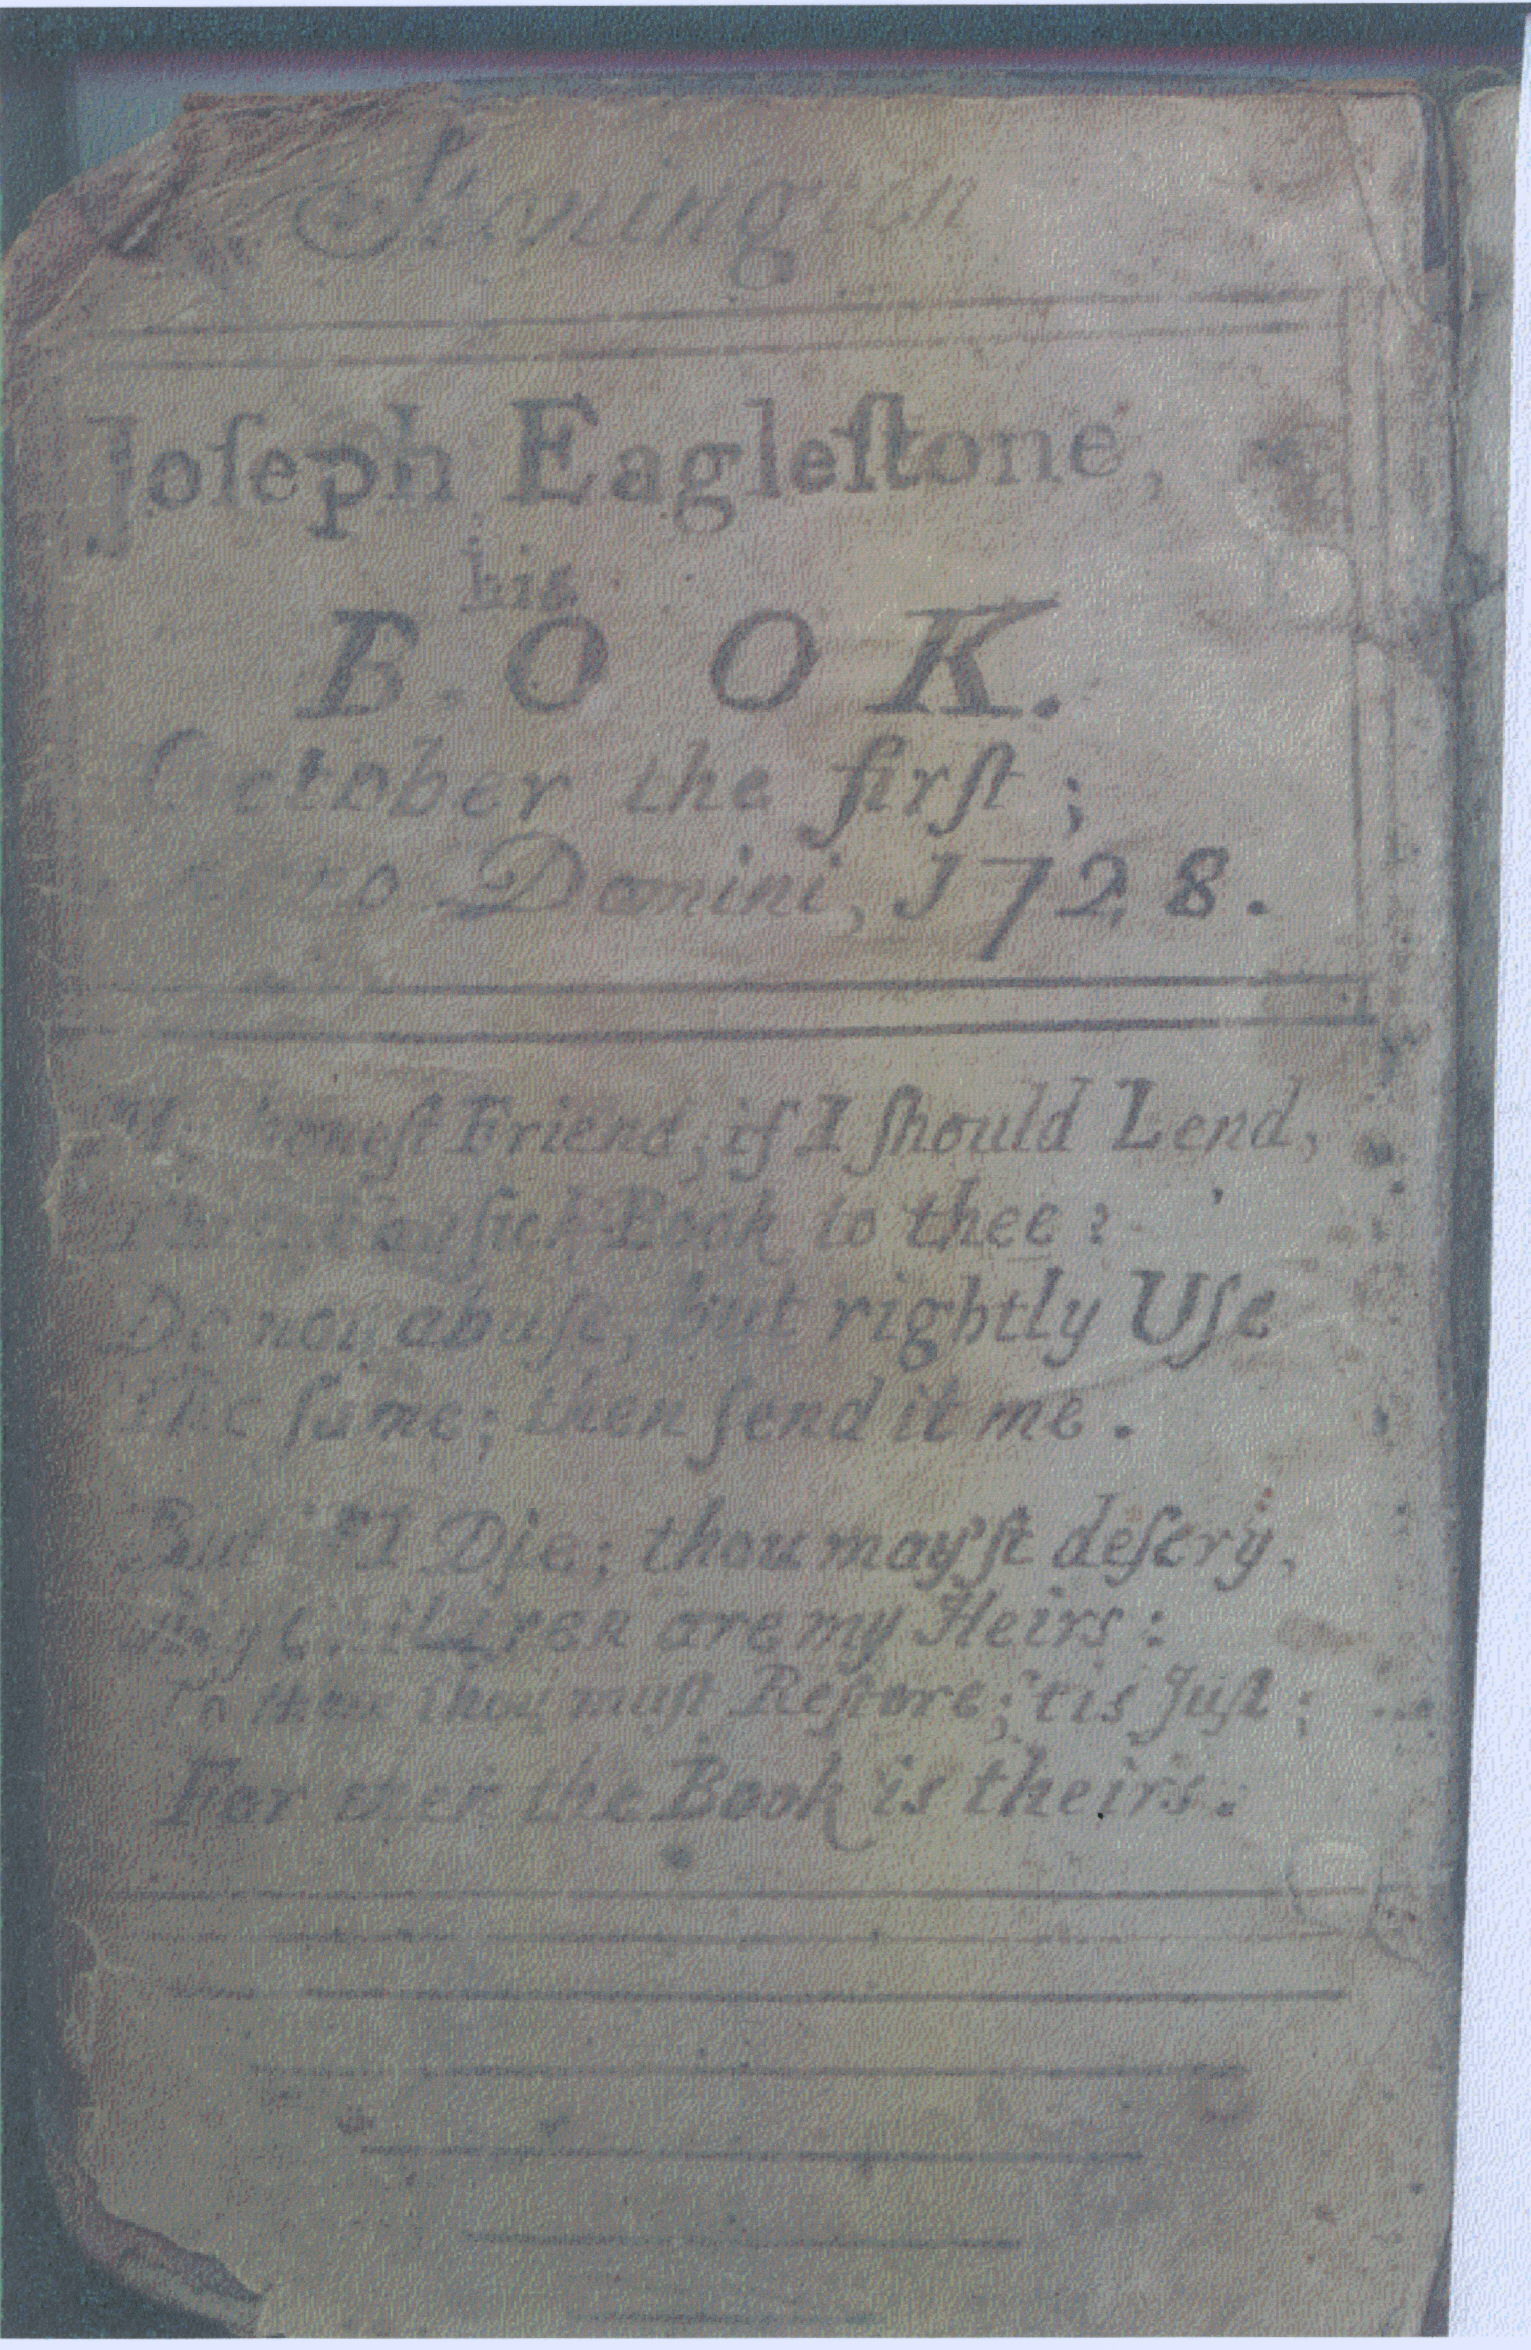 Joſeph Eagleſtone,
his
BOOK.
October the firſt;
Domini, 1728.
My honeſt Friend, if I ſhould Lend,
Muſick-Book to thee?
Do not abuſe, but rightly Uſe
The ſame; then ſend it me.
But if I Die; thou may'ſt deſcry,
My Children are my Heirs:
To them thou muſt Reſtore; 'tis Juſt;
For then the Book is theirs.